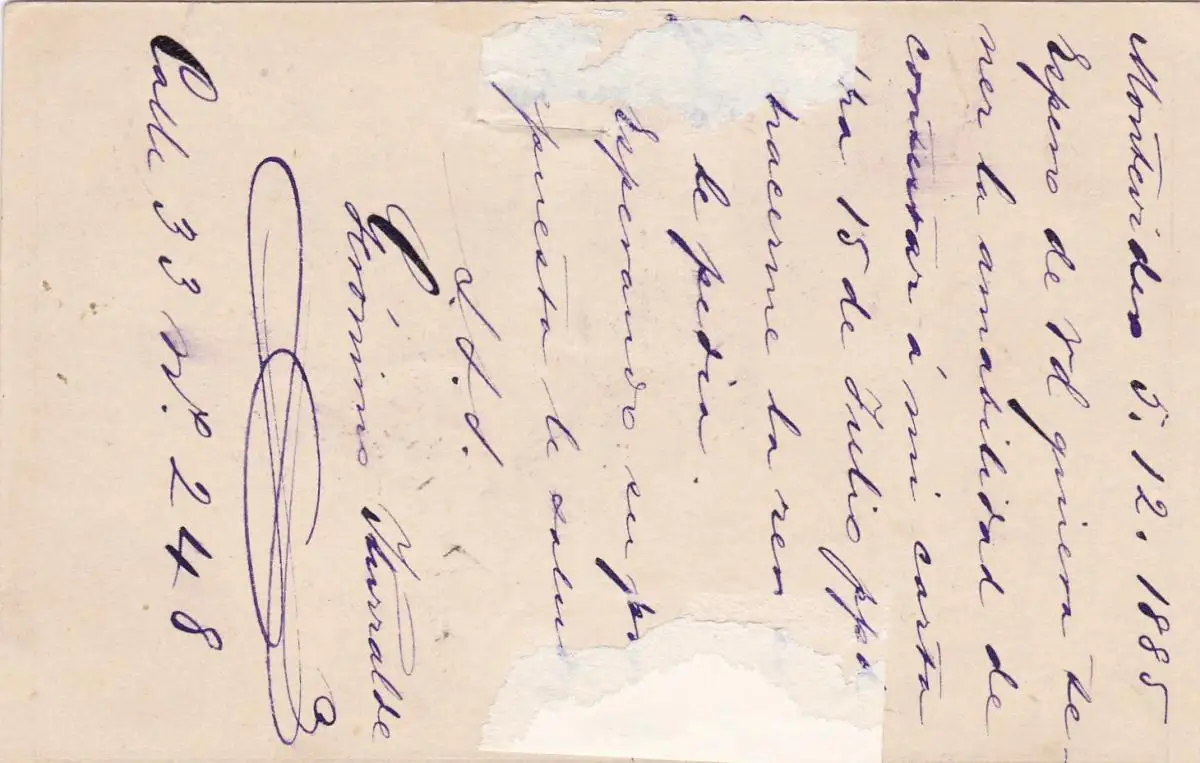 Montevideo 5. 12. 1885
Espero de Vd quiera te-
ner la amabilidad de
contestar á mi carta
15 de Julio pp
hacerme la
le pedia.
Esperando su
puesta le
S. S. S.
Gerónimo Yturralde
Calle 33 Nº 248